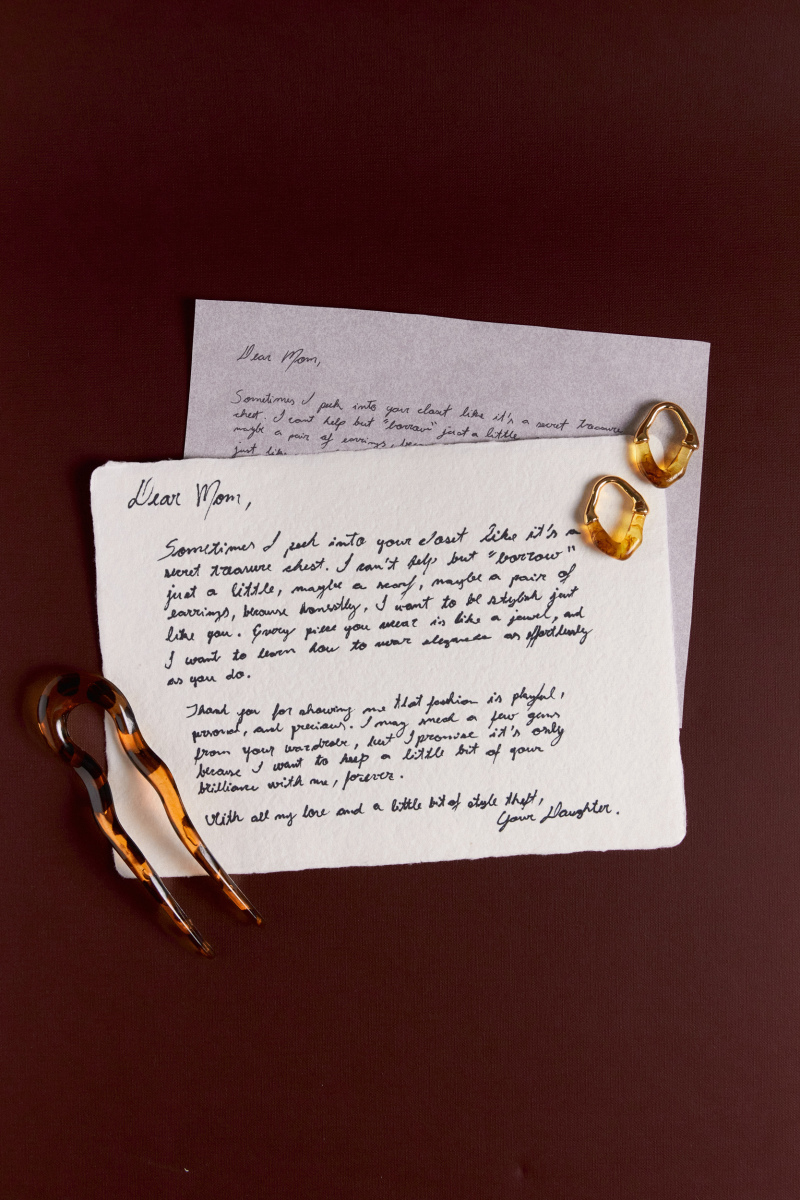 Dear Mom,
Sometimes I peek into your closet like it's a secret treasure
chest. I can't help but "borrow" just a little
maybe a pair of earrings, because
just like
Dear Mom,
Sometimes I peek into your closet like it's a
secret treasure chest. I can't help but "borrow"
just a little, maybe a scarf, maybe a pair of
earrings, because honestly, I want to be stylish just
like you. Every piece you wear is like a jewel, and
I want to learn how to wear elegance as effortlessly
as you do.
Thank you for showing me that fashion is playful,
personal, and precious. I may sneak a few gems
from your wardrobe, but I promise it's only
because I want to keep a little bit of your
brilliance with me, forever.
With all my love and a little bit of style theft,
Your Daughter.